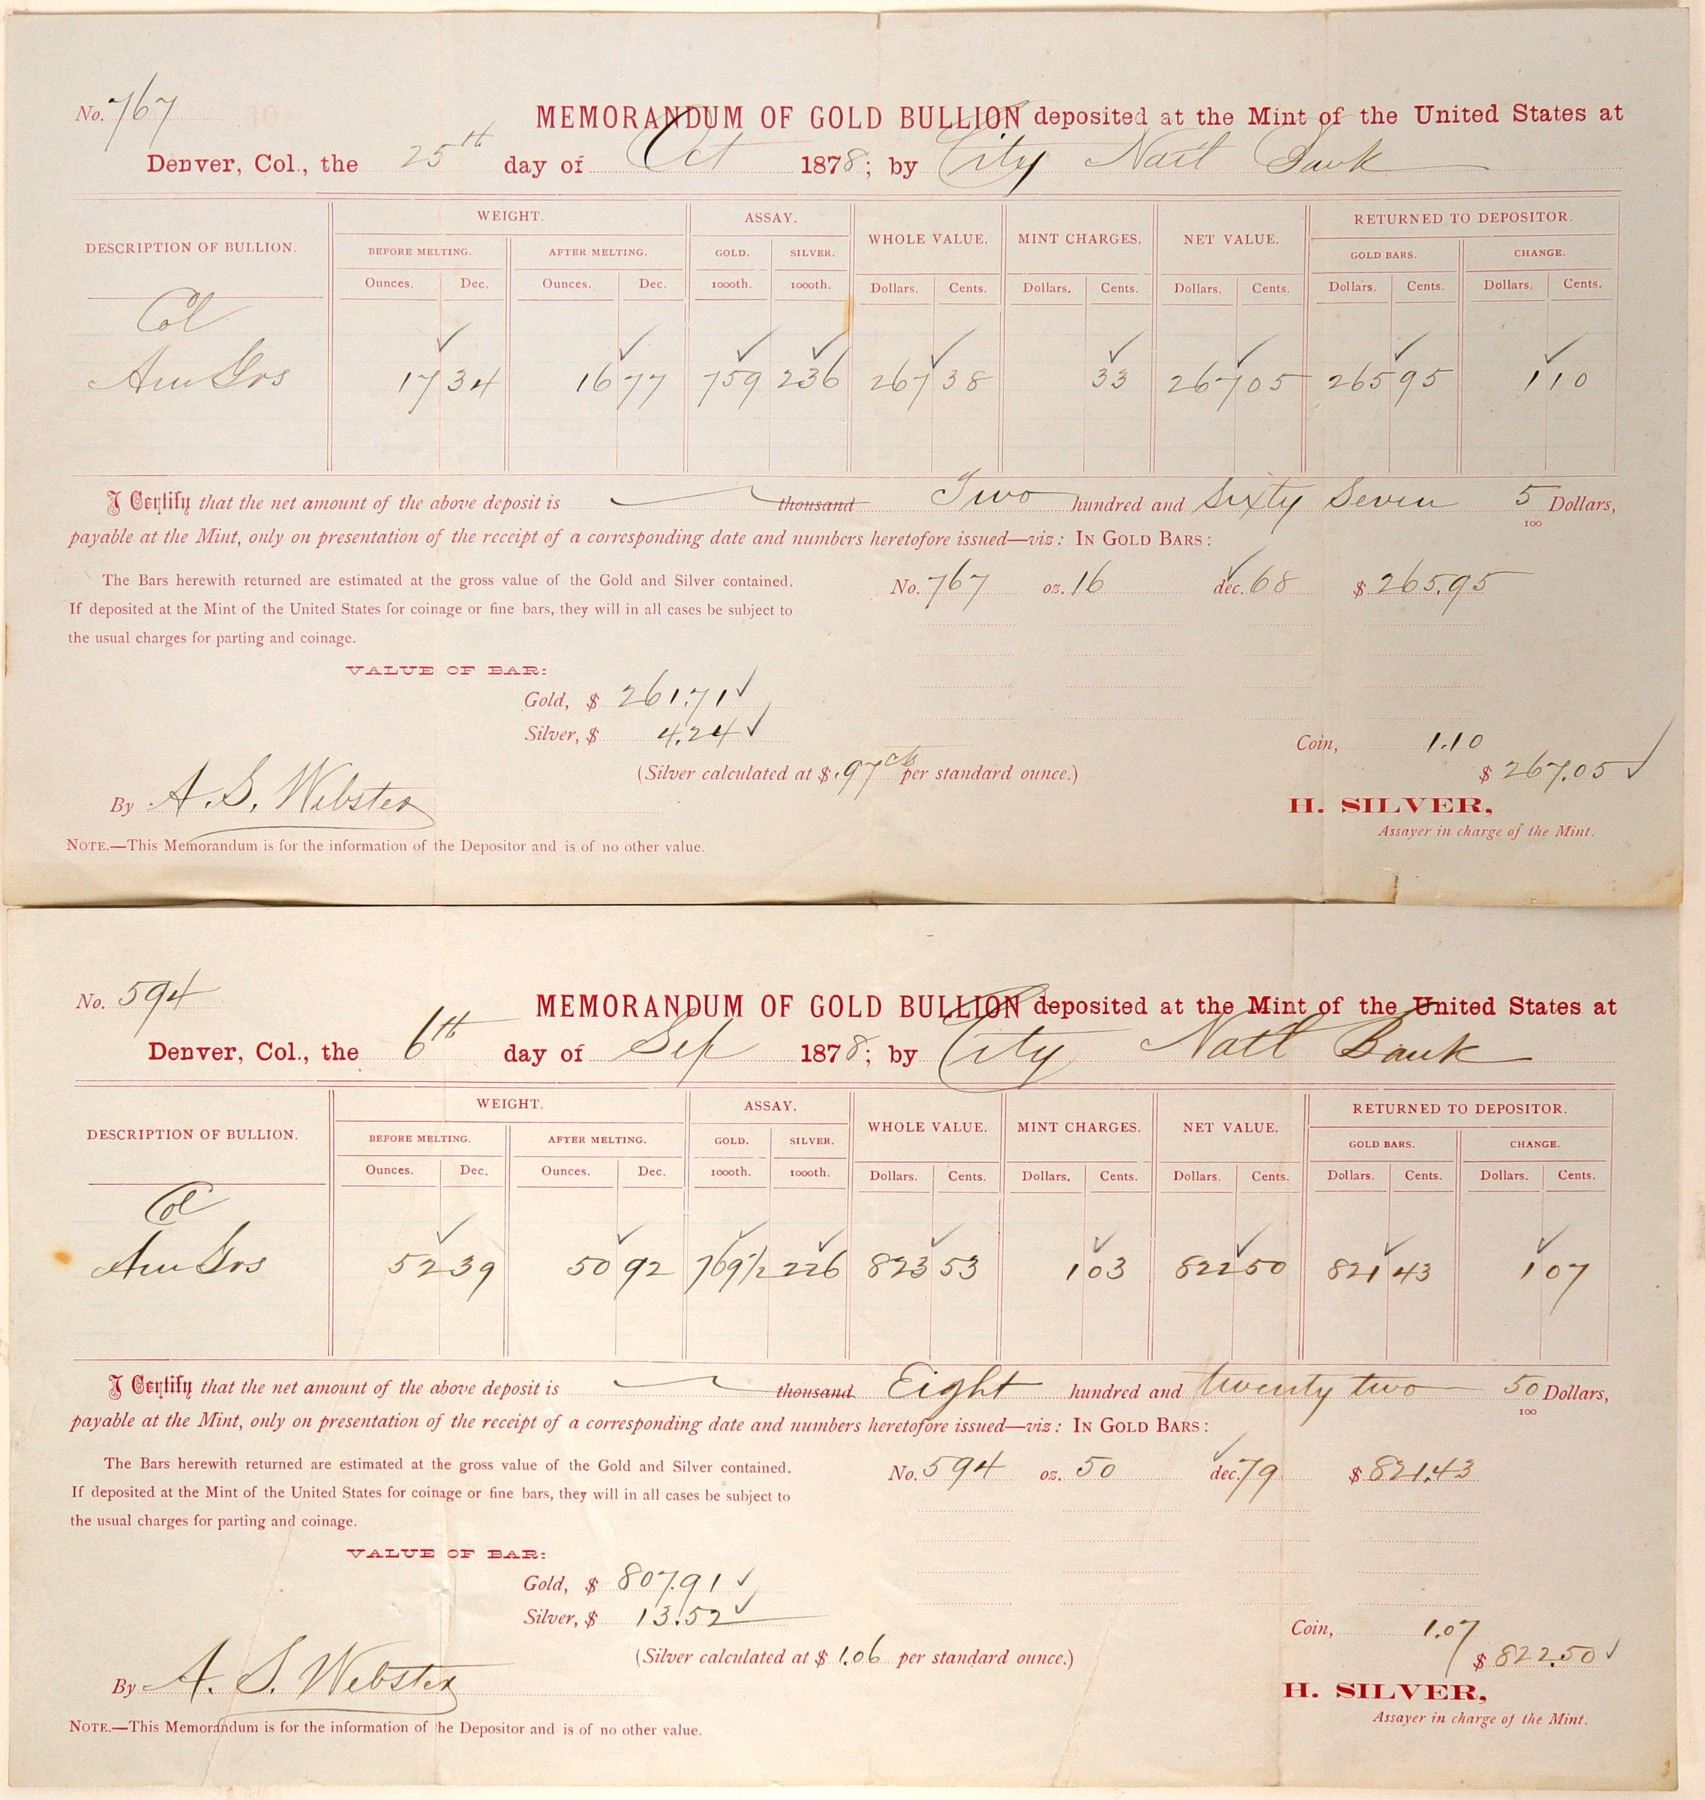 No. 767 MEMORANDUM OF GOLD BULLION deposited at the Mint of the United States at
Denver, Col., the 25th day of Oct 1878; by City Natl Bank
DESCRIPTION OF BULLION. WEIGHT. ASSAY. WHOLE VALUE. MINT CHARGES. NET VALUE. RETURNED TO DEPOSITOR.
BEFORE MELTING. AFTER MELTING. GOLD. SILVER. GOLD BARS. CHANGE.
Ounces. Dec. Ounces. Dec. 1000th. 1000th. Dollars. Cents. Dollars. Cents. Dollars. Cents. Dollars. Cents. Dollars. Cents.
Col
Am Grs 17 34 16 77 759 236 267 38 33 267 05 265 95 1 10
I Certify that the net amount of the above deposit is thousand Two hundred and Sixty Seven 5/100 Dollars,
payable at the Mint, only on presentation of the receipt of a corresponding date and numbers heretofore issued—viz: IN GOLD BARS:
The Bars herewith returned are estimated at the gross value of the Gold and Silver contained. No. 767 oz. 16 dec. 68 $ 265.95
If deposited at the Mint of the United States for coinage or fine bars, they will in all cases be subject to
the usual charges for parting and coinage.
VALUE OF BAR:
Gold, $ 261.71
Silver, $ 4.24
Coin, 1.10
(Silver calculated at $ .97cts per standard ounce.) $ 267.05
By A. S. Webster H. SILVER,
Assayer in charge of the Mint.
NOTE.—This Memorandum is for the information of the Depositor and is of no other value.
No. 594 MEMORANDUM OF GOLD BULLION deposited at the Mint of the United States at
Denver, Col., the 6th day of Sep 1878; by City Natl Bank
DESCRIPTION OF BULLION. WEIGHT. ASSAY. WHOLE VALUE. MINT CHARGES. NET VALUE. RETURNED TO DEPOSITOR.
BEFORE MELTING. AFTER MELTING. GOLD. SILVER. GOLD BARS. CHANGE.
Ounces. Dec. Ounces. Dec. 1000th. 1000th. Dollars. Cents. Dollars. Cents. Dollars. Cents. Dollars. Cents. Dollars. Cents.
Col
Am Grs 52 39 50 92 769½ 226 823 53 1 03 822 50 821 43 1 07
I Certify that the net amount of the above deposit is thousand Eight hundred and twenty two 50/100 Dollars,
payable at the Mint, only on presentation of the receipt of a corresponding date and numbers heretofore issued—viz: IN GOLD BARS:
The Bars herewith returned are estimated at the gross value of the Gold and Silver contained. No. 594 oz. 50 dec. 79 $ 821.43
If deposited at the Mint of the United States for coinage or fine bars, they will in all cases be subject to
the usual charges for parting and coinage.
VALUE OF BAR:
Gold, $ 807.91
Silver, $ 13.52
Coin, 1.07
(Silver calculated at $ 1.06 per standard ounce.) $ 822.50
By A. S. Webster H. SILVER,
Assayer in charge of the Mint.
NOTE.—This Memorandum is for the information of the Depositor and is of no other value.